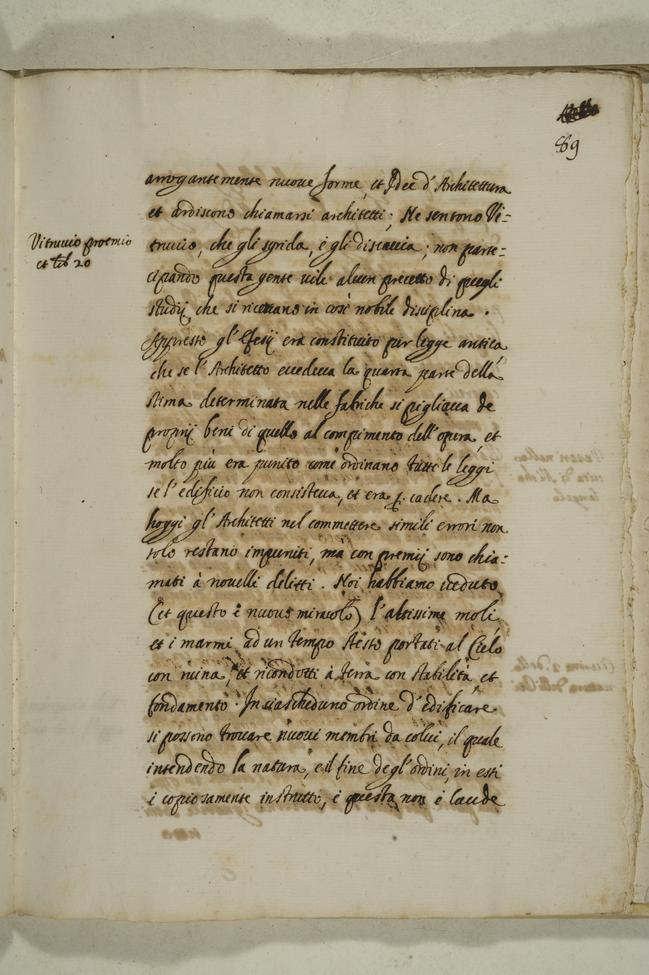 89
arrogantemente nuove forme, et Idee d'Architettura
et ardiscono chiamarsi architetti; Ne sentono Vi-
Vitruvio proemio
et lib 20
truvio, che gli sgrida, e gli discaccia; non parte-
cipando questa gente vile alcun precetto di quegli
studij, che si ricettano in così nobile disciplina.
Appresso gl'Efesij era constituito pur legge antica
che se l'Architetto eccedeva la quarta parte della
stima determinata nelle fabriche si pigliava de
proprij beni di quello al compimento dell'opera, et
molto più era punito come ordinano tutte le leggi
se l'edificio non consisteva, et era p. cadere. Ma
hoggi gl'Architetti nel commettere simili errori non
solo restano impuniti, mà con premij sono chia-
mati à novelli delitti. Noi habbiamo veduto
(et questo è nuovo miracolo) l'altissime moli
et i marmi ad un tempo stesso portati al Cielo
con ruina, et ricondotti à terra con stabilità et
fondamento. In ciascheduno ordine d'edificare
si possono trovare nuovi membri da colui, il quale
intendendo la natura, e il fine degl'ordini, in essi
è copiosamente instrutto, e questa non è laude